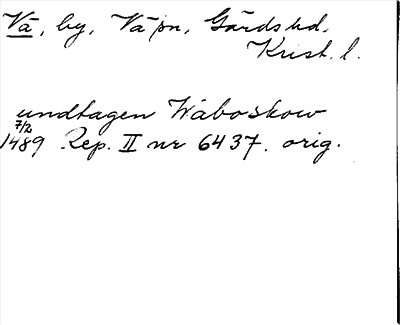 Vä, by, Vä sn, Gärds hd.
Krist. l.
undtagen Waboskow
7/2
1489 Rep. II nr 6437. orig.